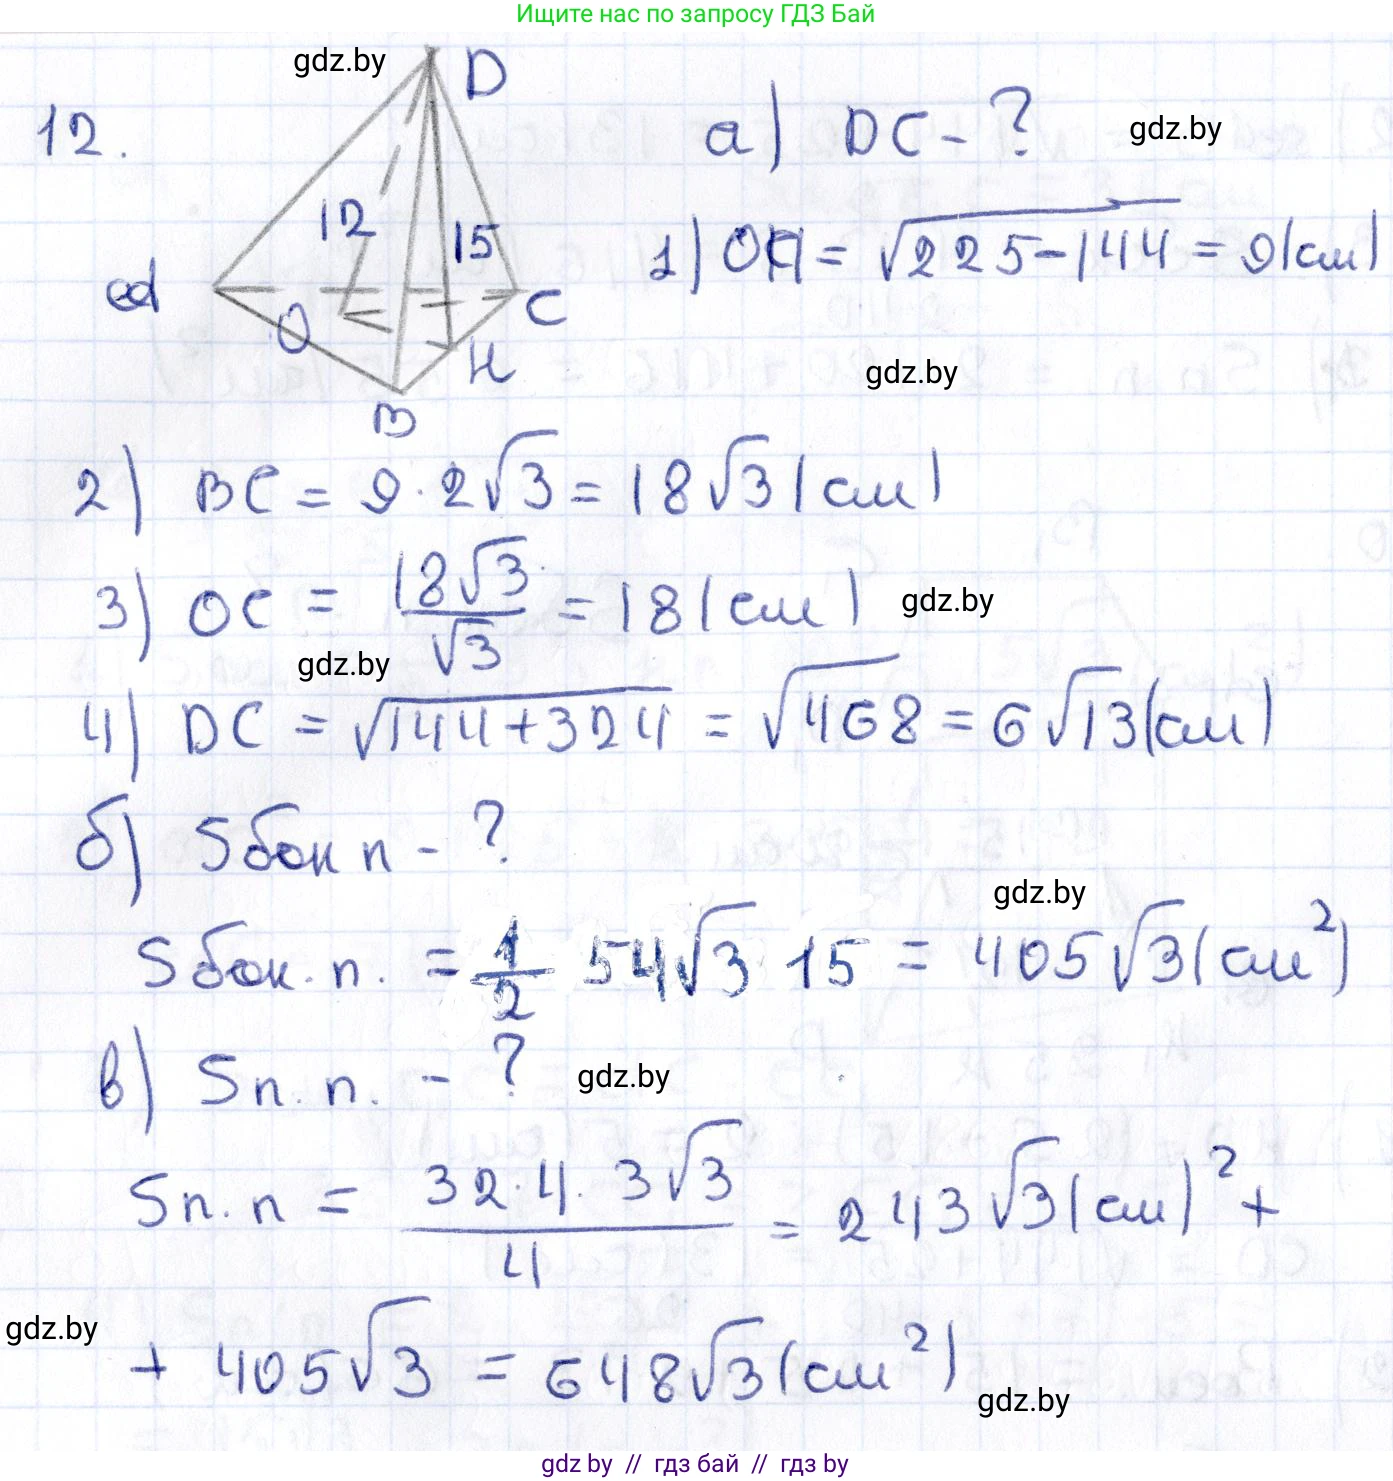 Ищите нас по запросу ГДЗ Бай
gdz.by
D
12.
а) DC - ?
gdz.by
12
15
1) OH = √225-144 = 9(см)
O
C
H
gdz.by
B
2) BC = 9·2√3 = 18√3(см)
3) OC = 18√3/√3 = 18(см)
gdz.by
gdz.by
4) DC = √144+324 = √468 = 6√13(см)
б) Sбок п - ?
gdz.by
Sбок.п. = 1/2 54√3 15 = 405√3(см²)
в) Sп.п. - ?
gdz.by
Sп.п = 32·4·3√3/4 = 243√3(см)² +
gdz.by
+ 405√3 = 648√3(см²)
gdz.by
gdz.by // гдз бай // гдз by